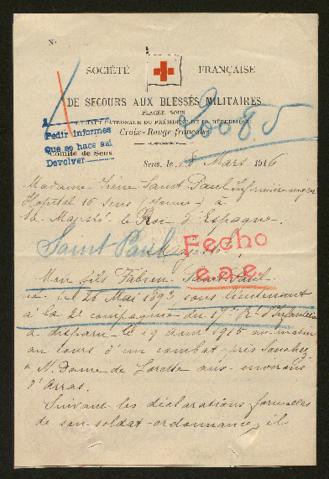 N.
SOCIÉTÉ FRANÇAISE
DE SECOURS AUX BLESSÉS MILITAIRES
PLACÉE SOUS
LE HAUT PATRONAGE DU PRÉSIDENT DE LA RÉPUBLIQUE
Croix-Rouge française
A
Pedir informes
Que se hace así
Devolver
Comité de Sens
Sens, le Mars 1916
Madame Irène Saint Paul Infirmière
Hôpital 10 Sens (Yonne) à
Sa Majesté le Roi d'Espagne.
Saint Paul
Fecho
Mon fils Fabien Saint Paul
né le 26 Mai 1893 sous lieutenant
à la 2e compagnie du R. d'Infanterie
a disparu le 19 1915 au matin
au cours d'un combat près Souchez
N. Dame de Lorette aux environs
d'Arras.
Suivant les déclarations formelles
de son soldat-ordonnance, il